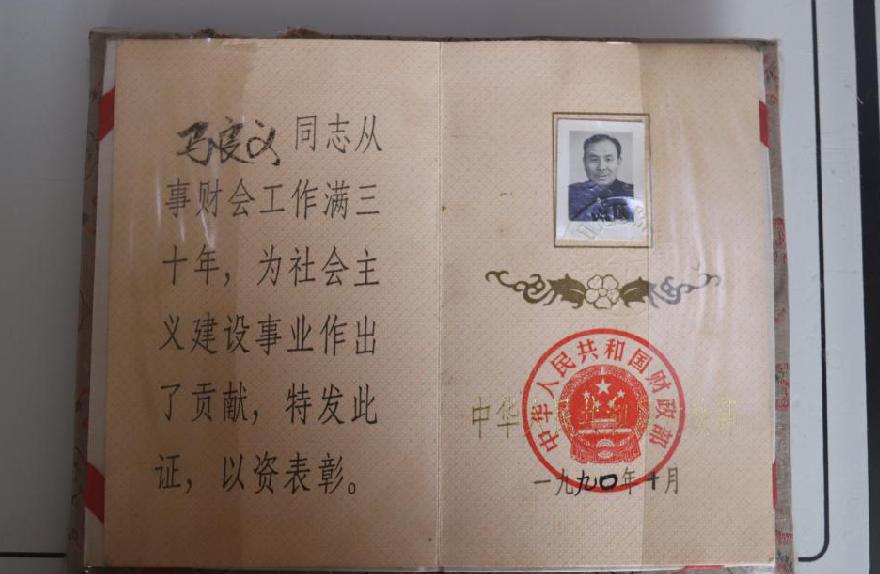 马良义同志从
事财会工作满三
十年，为社会主
义建设事业作出
了贡献，特发此
证，以资表彰。
中华人民共和国财政部
中华人民共和国财政部
一九九〇年十月